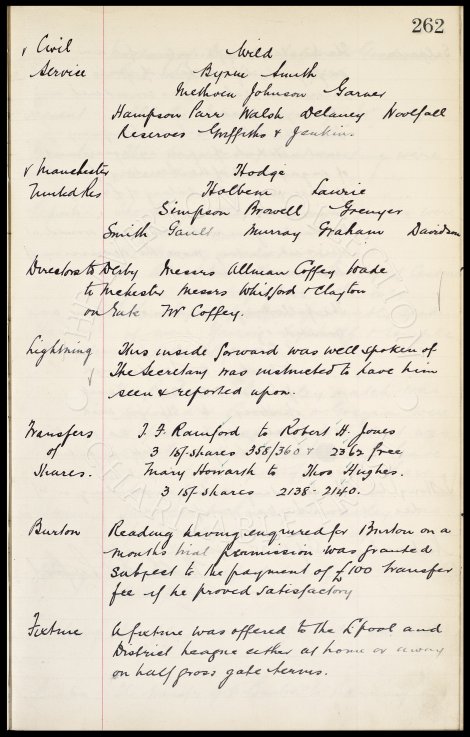 262
v Civil Wild
Service Byrne Smith
Methven Johnson Garner
Hampson Parr Walsh Delaney Woolfall
Reserves Griffiths & Jenkins
v Manchester Hodge
United Res Holbem Lawrie
Simpson Browell Grenyer
Smith Gault Murray Graham Davidson
Directors to Derby Messrs Allman Coffey Wade
to Mchester Messrs Whitford & Clayton
on Gate Mr Coffey.
Lightning This inside forward was well spoken of
The Secretary was instructed to have him
seen & reported upon.
Transfers J. F. Rainford to Robert H. Jones
of 3 15/- shares 358/360 & 2362 free
Shares. Mary Howarth to Thos Hughes.
3 15/- shares 2138-2140.
Burton Reading having enquired for Burton on a
months trial permission was granted
subject to the payment of £100 transfer
fee if he proved satisfactory
Fixture A fixture was offered to the L'pool and
District League either at home or away
on half gross gate terms.